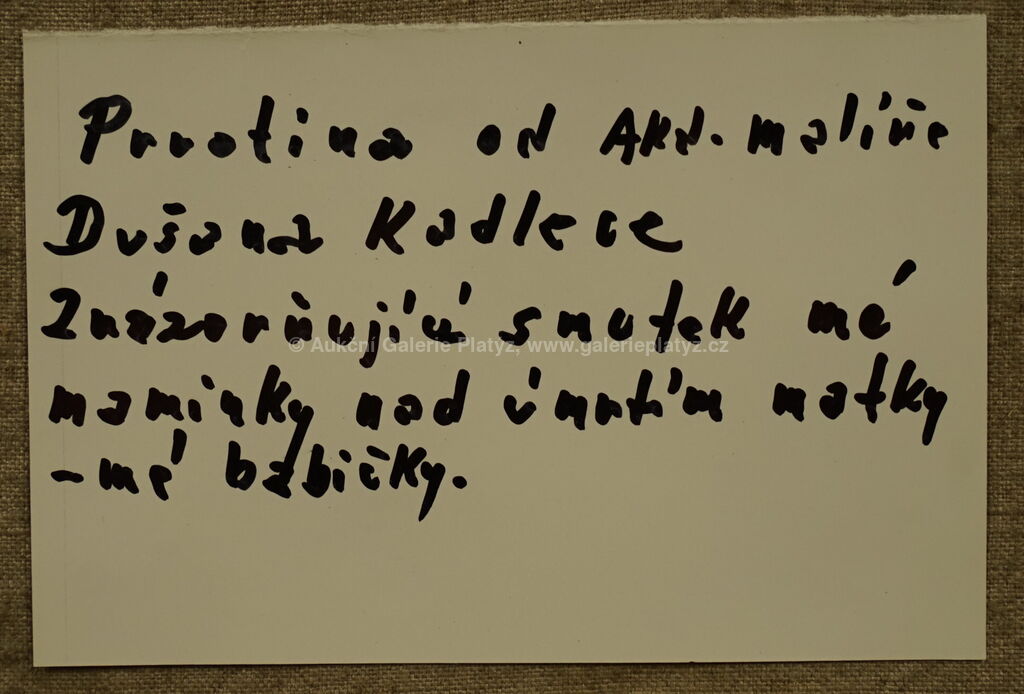 Prvotina od Akd. malíře
Dušana Kadlece
Znázorňující smutek mé
© Aukční Galerie Platýz, www.galerieplatyz.cz
maminky nad úmrtím matky
- mé babičky.